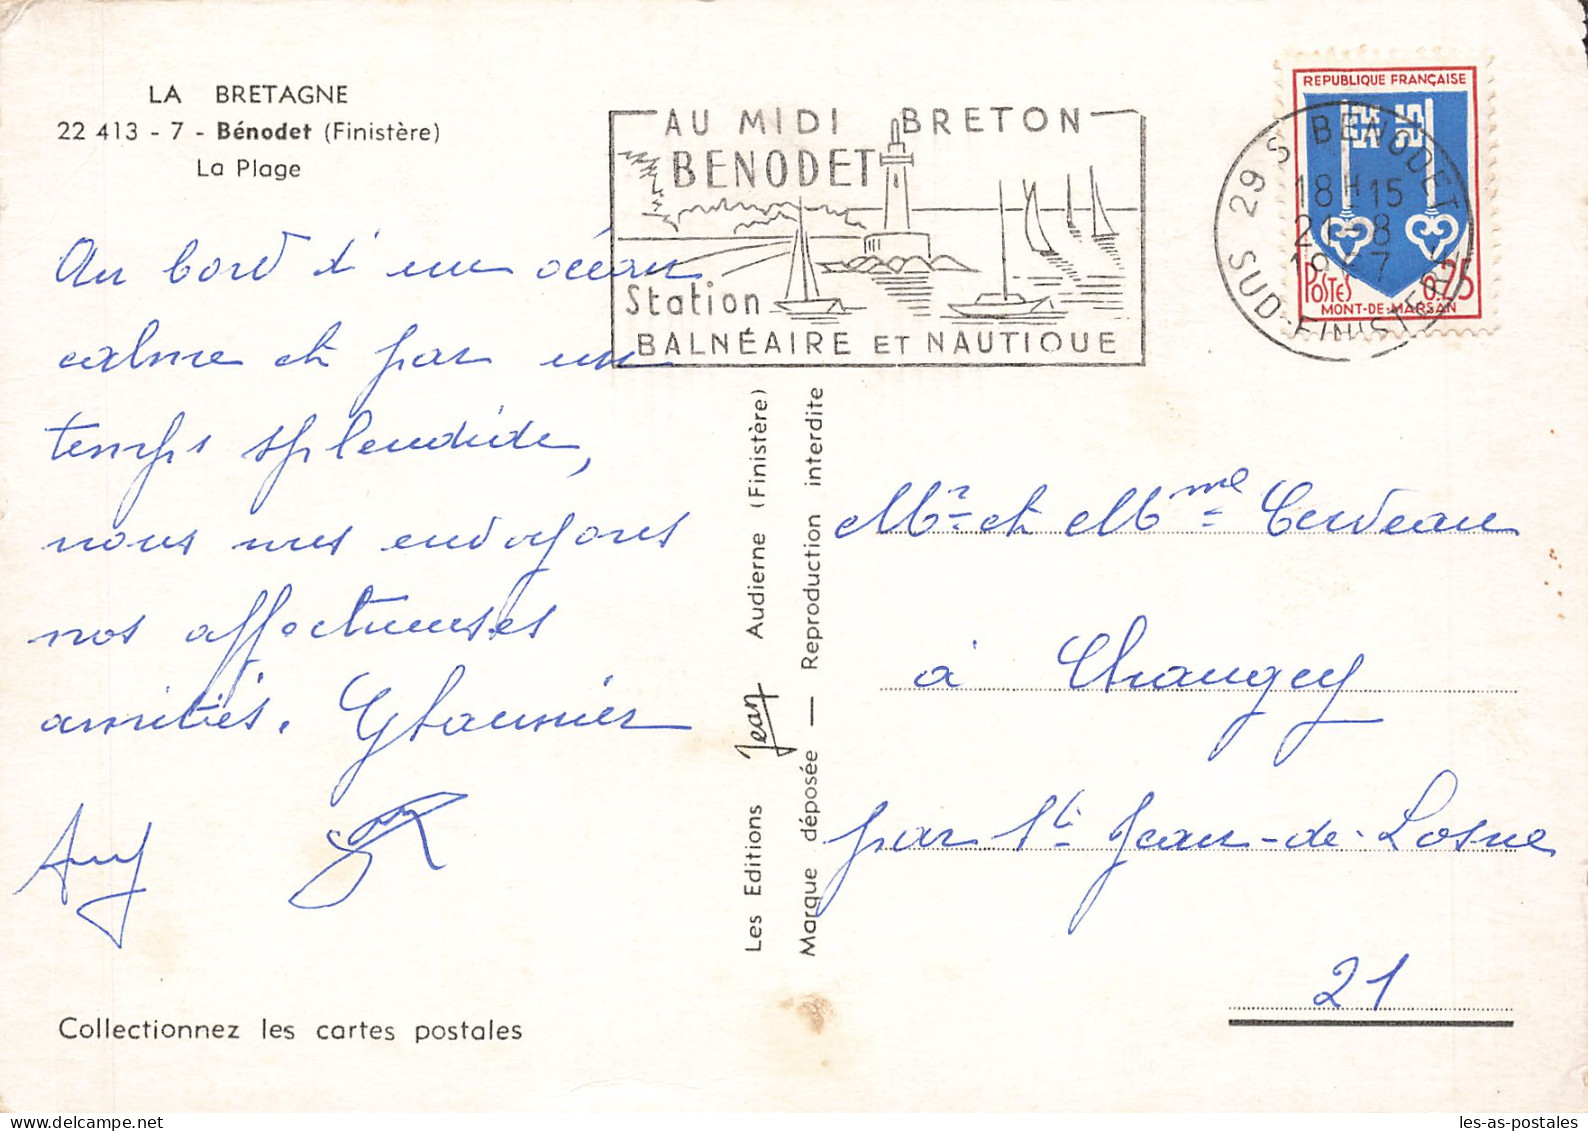 LA BRETAGNE
22 413 - 7 - Bénodet (Finistère)
La Plage
Au bord d'un océan
calme et par un
temps splendide,
nous vous envoyons
nos affectueuses
amitiés.
Collectionnez les cartes postales
Les Editions Jean Audierne (Finistère)
Marque déposée — Reproduction interdite
AU MIDI BRETON
BENODET
Station
BALNÉAIRE ET NAUTIQUE
REPUBLIQUE FRANÇAISE
POSTES 0.25
MONT-DE-MARSAN
29 S BENODET
18H15
21-8
SUD-FINISTERE
Mr et Mme Cerveau
à Chaugey
par St Jean-de-Losne
21
les-as-postales